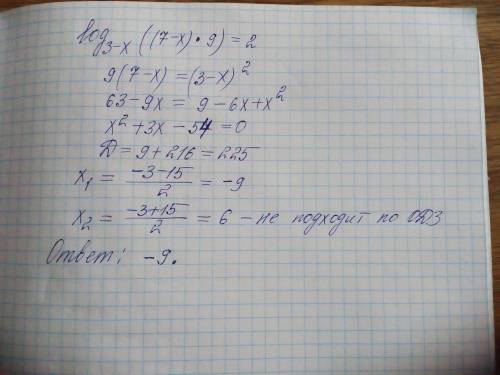 log₃₋ₓ((7-x)•9)=2
9(7-x)=(3-x)²
63-9x = 9-6x+x²
x²+3x-54=0
D=9+216=225
x₁ = (-3-15)/2 = -9
x₂ = (-3+15)/2 = 6 - не подходит по ОДЗ
Ответ: -9.